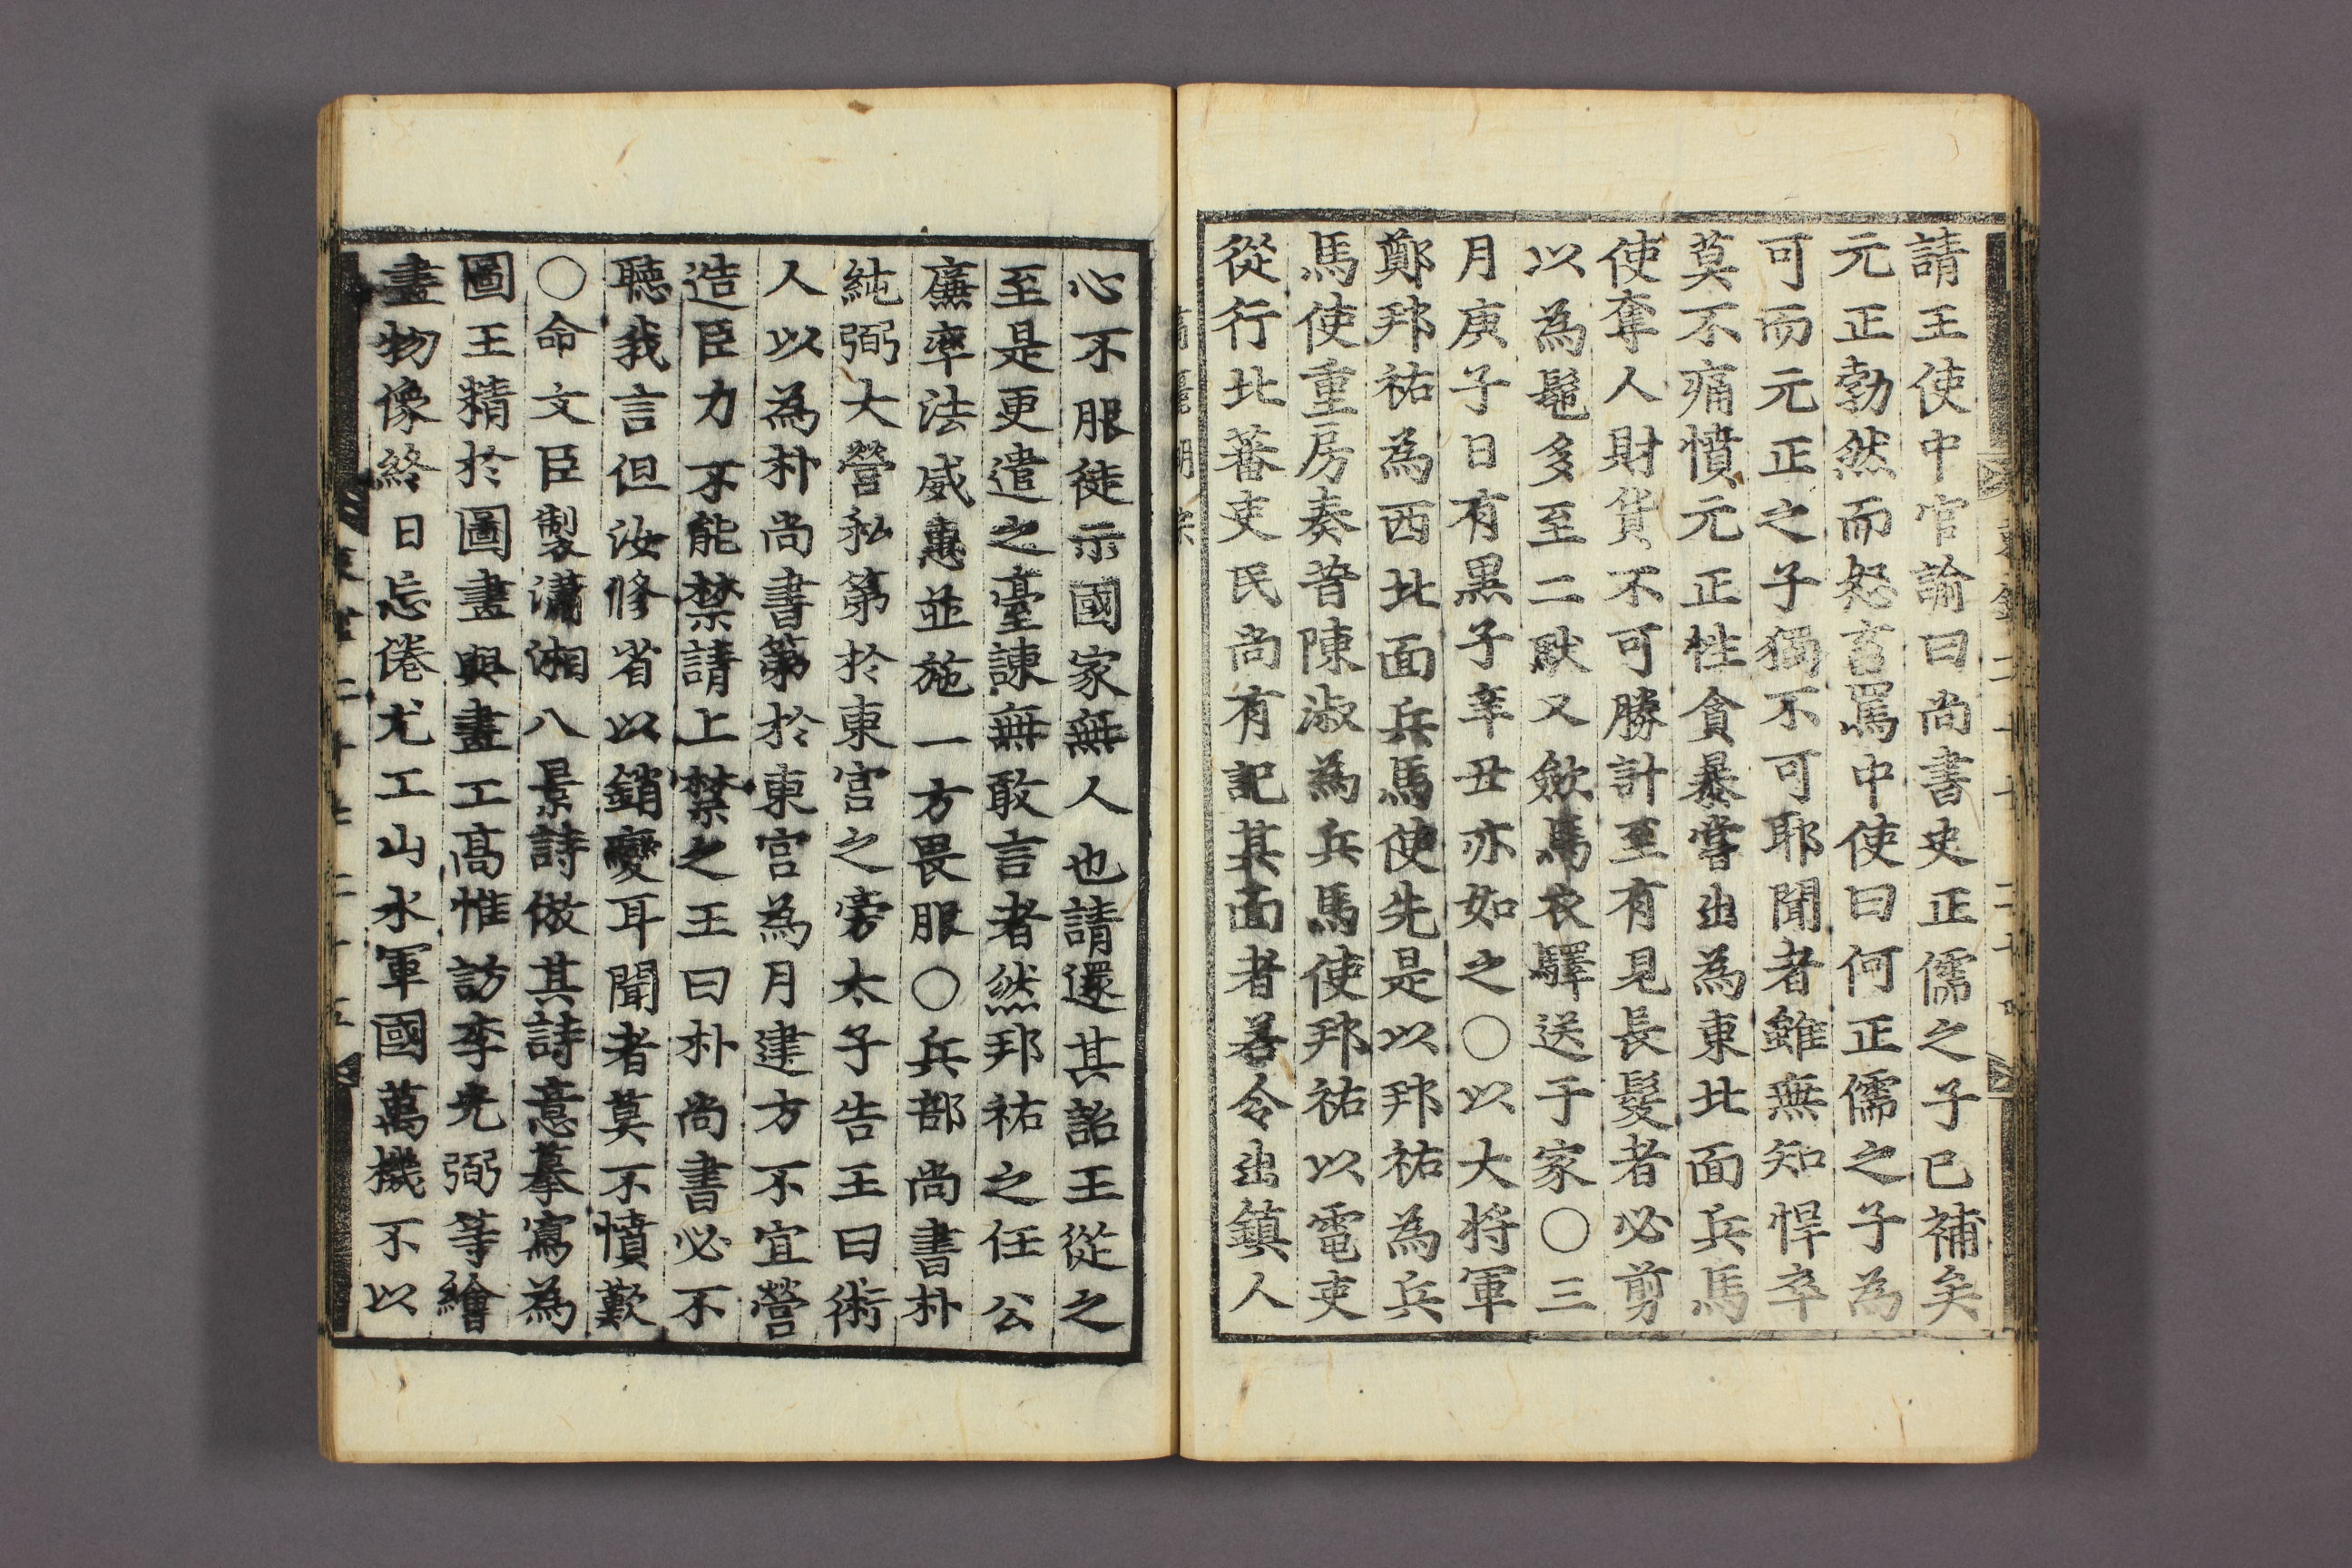 請王使中官諭曰尚書史正儒之子已補矣
元正勃然而怒言罵中使曰何正儒之子為
可而元正之子獨不可耶聞者雖無知悍卒
莫不痛憤元正性貪暴嘗出為東北面兵馬
使奪人財貨不可勝計至有見長髮者必剪
以為髢多至二䭾又斂馬衣驛送于家○三
月庚子日有黒子辛丑亦如之○以大将軍
鄭邦祐為西北面兵馬使先是以邦祐為兵
馬使重房奏昔陳淑為兵馬使邦祐以電吏
從行北蕃吏民尚有記其面者若令出鎮人
心不服徒示國家無人也請還其詔王從之
至是更遣之臺諫無敢言者然邦祐之任公
廉率法威惠並施一方畏服○兵部尚書朴
純弼大營私第於東宮之旁太子告王曰術
人以為朴尚書第於東宮為月建方不宜營
造臣力不能禁請上禁之王曰朴尚書必不
聴我言但汝修省以銷變耳聞者莫不憤歎
○命文臣製瀟湘八景詩倣其詩意摹寫為
圖王精於圖畫與畫工高惟訪李光弼等繪
畫物像終日忘倦尤工山水軍國萬機不以